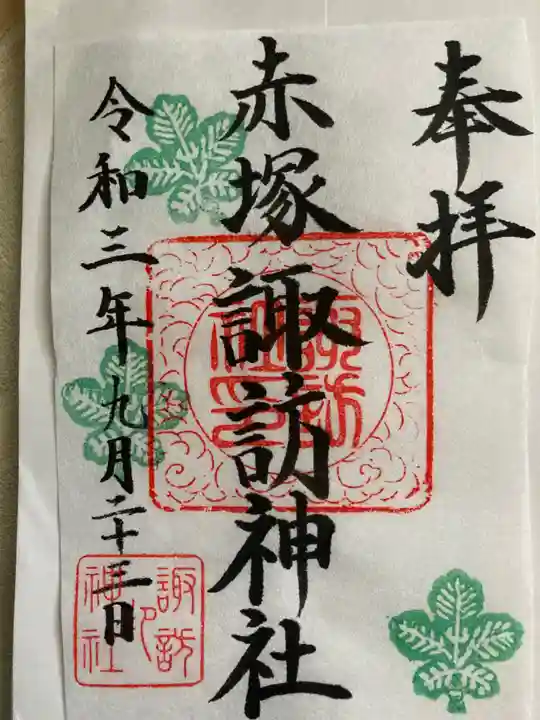 奉拝
赤塚諏訪神社
令和三年九月二十三日
諏訪
社印
諏訪
神社
印